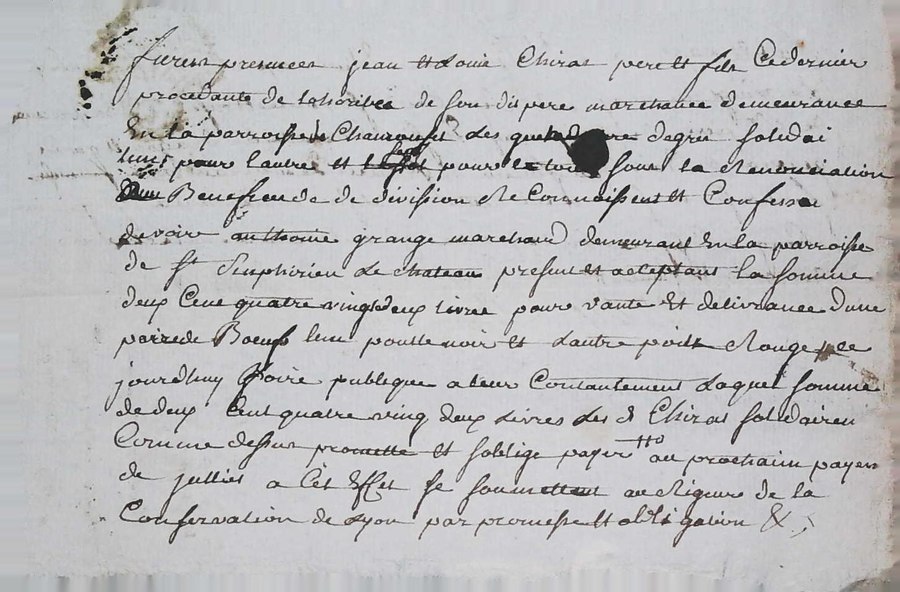 furent presences jean et Louis Chirat pere et fils Ce dernier
procedante de Lahoritée de son dit pere marchance demeurance
En la parroisse de Chamousset Les degrée solidai
lun pour lautre et pour le tout sous la Renonciation
Benefice de de division Reconnoissent et Confesse
devoir anthoine grange marchand demeurant En la parroisse
de st Simphorien Le chateau present et acteptant la somme
deux Cent quatre vingt deux livres pour vante Et delivrance Dune
paire de Boeufs lun poille noir et Lautre poils Rouge ce
jourdhuy foire publique a leur Contantement Laquel somme
de deux Cent quatre ving deux Livres Les d Chirat solidairem
Comme dessus promette et soblige payer au prochain payem
de julliet a Cet Effet se soumettent au Rigueur de la
Conservation de Lyon par promesse et obligation &;